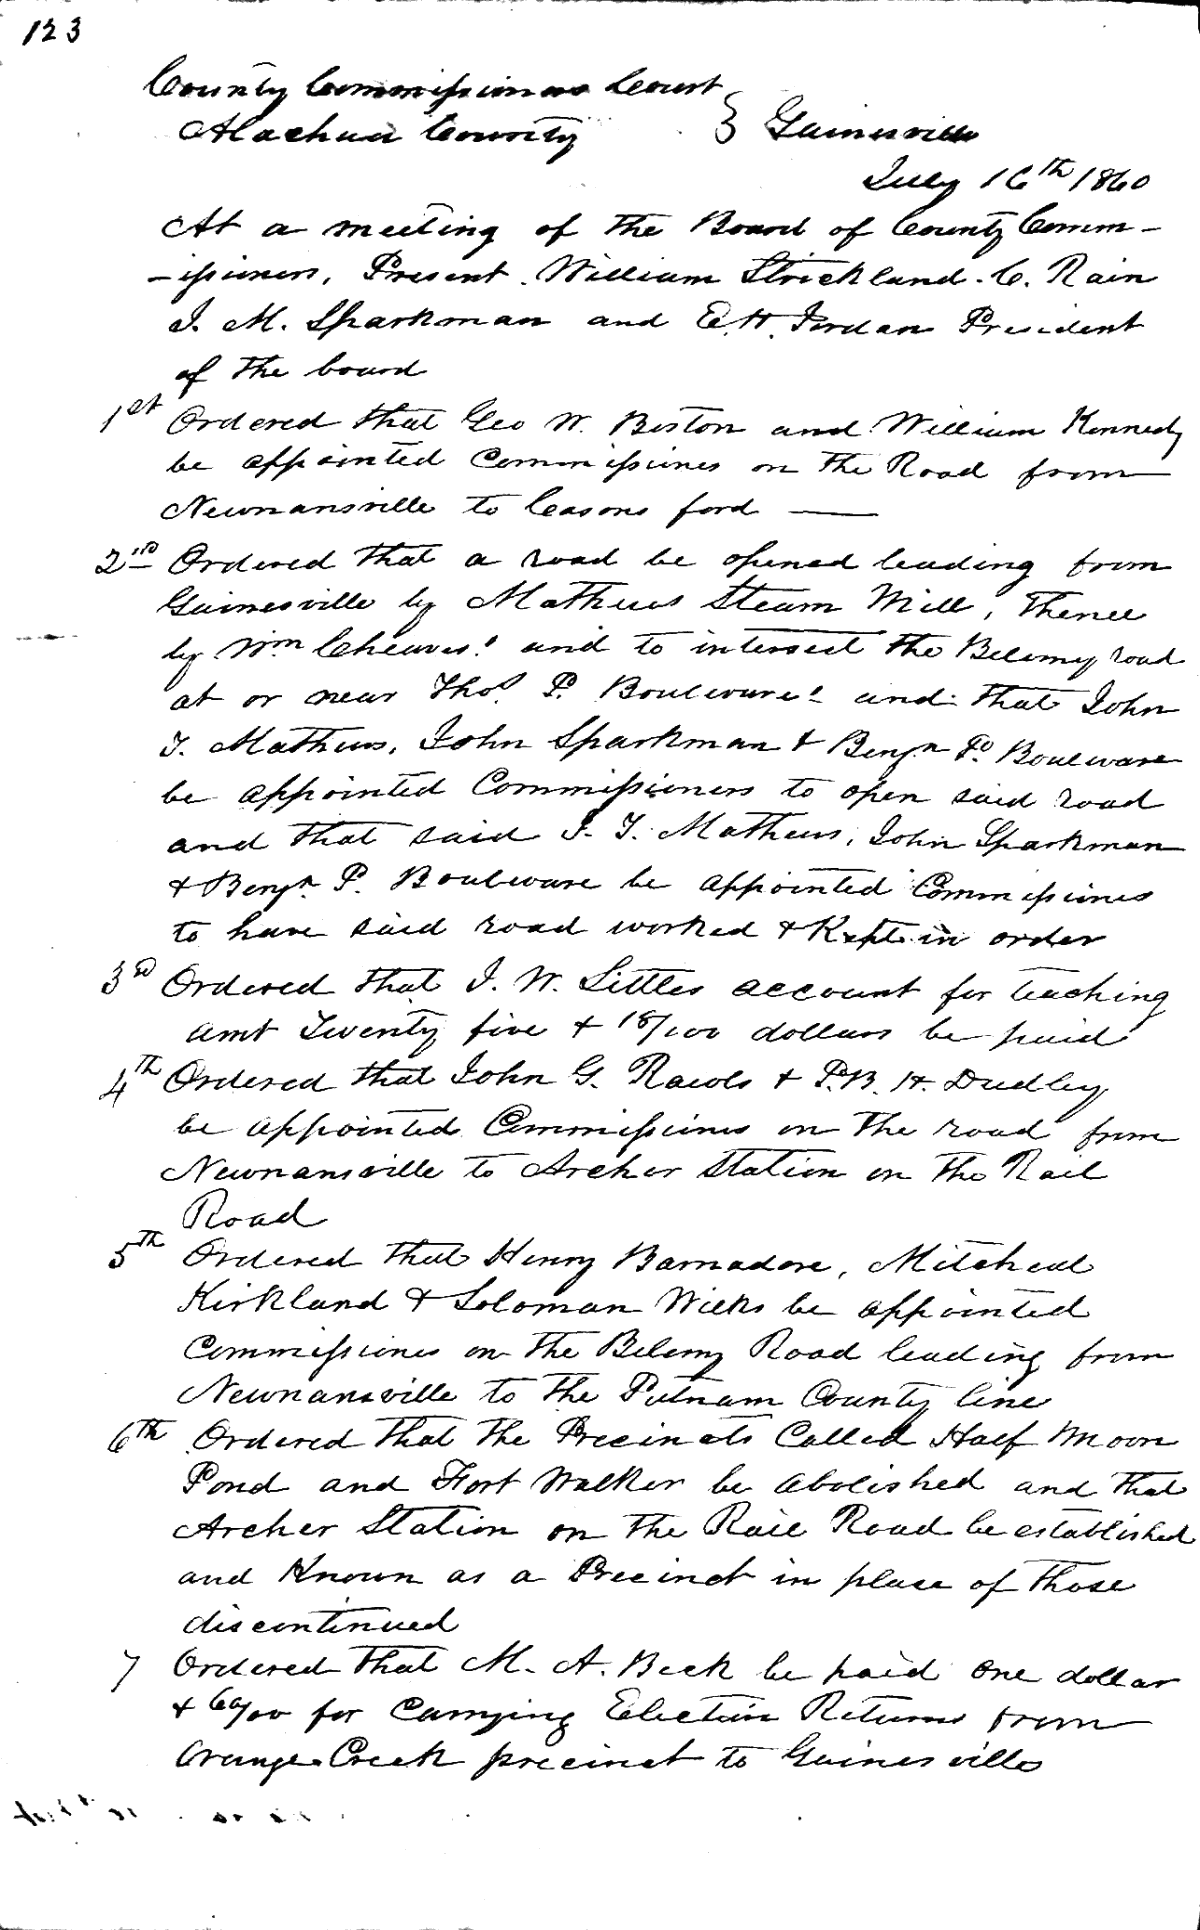 123
County Commissioners Court
Alachua County } Gainesville
July 16th 1860
At a meeting of the Board of County Comm-
-issioners, Present William Strickland. C. Rain
J. M. Sparkman and E. H. Jordan President
of the board
1st Ordered that Geo W. Boston and William Kennedy
be appointed Commissiones on the Road from
Newnansville to Ceasons ford
2nd Ordered that a road be opened leading from
Gainesville by Mathews Steam Mill, Thence
by Wm Cheaves' and to intersect the Belemy road
at or near Thos P. Boulware' and that John
T. Mathews, John Sparkman & Benjn P. Boulware
be appointed Commissioners to open said road
and that said J. T. Mathews, John Sparkman
& Benjn P. Boulware be appointed Commissiones
to have said road worked & Kept in order
3d Ordered that J. W. Littles account for teaching
amt Twenty five & 18/100 dollars be paid
4th Ordered that John G. Rawls & P. B. H. Dudley
be appointed Commissiones on the road from
Newnansville to Archer Station on the Rail
Road
5th Ordered that Henry Barnadore, Mitchell
Kirkland & Soloman Wicks be appointed
Commissiones on the Belemy Road leading from
Newnansville to the Putnam County line
6th Ordered that the Precincts Called Half Moon
Pond and Fort Walker be abolished and that
Archer Station on the Rail Road be established
and Known as a Precinct in place of those
discontinued
7 Ordered that M. A. Beck be paid one dollar
& 60/00 for Carrying Election Returns from
Orange Creek precinct to Gainesville